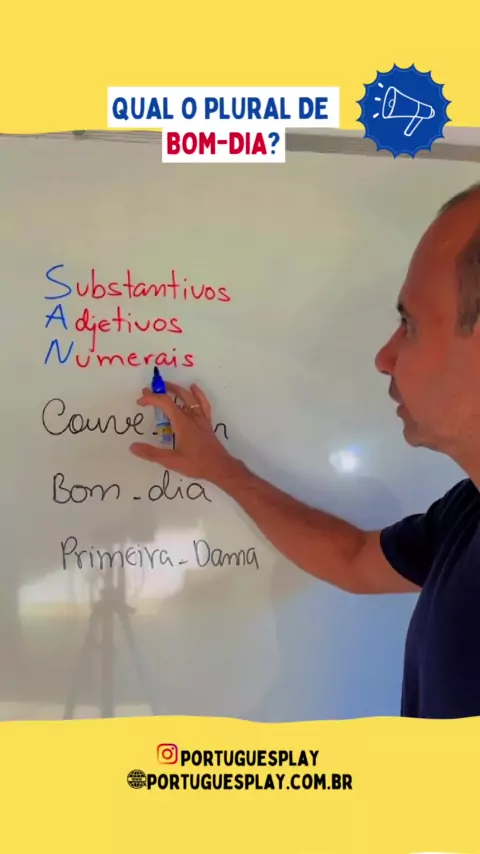 QUAL O PLURAL DE
BOM-DIA?
Substantivos
Adjetivos
Numerais
Couve-
Bom-dia
Primeira-Dama
PORTUGUESPLAY
PORTUGUESPLAY.COM.BR